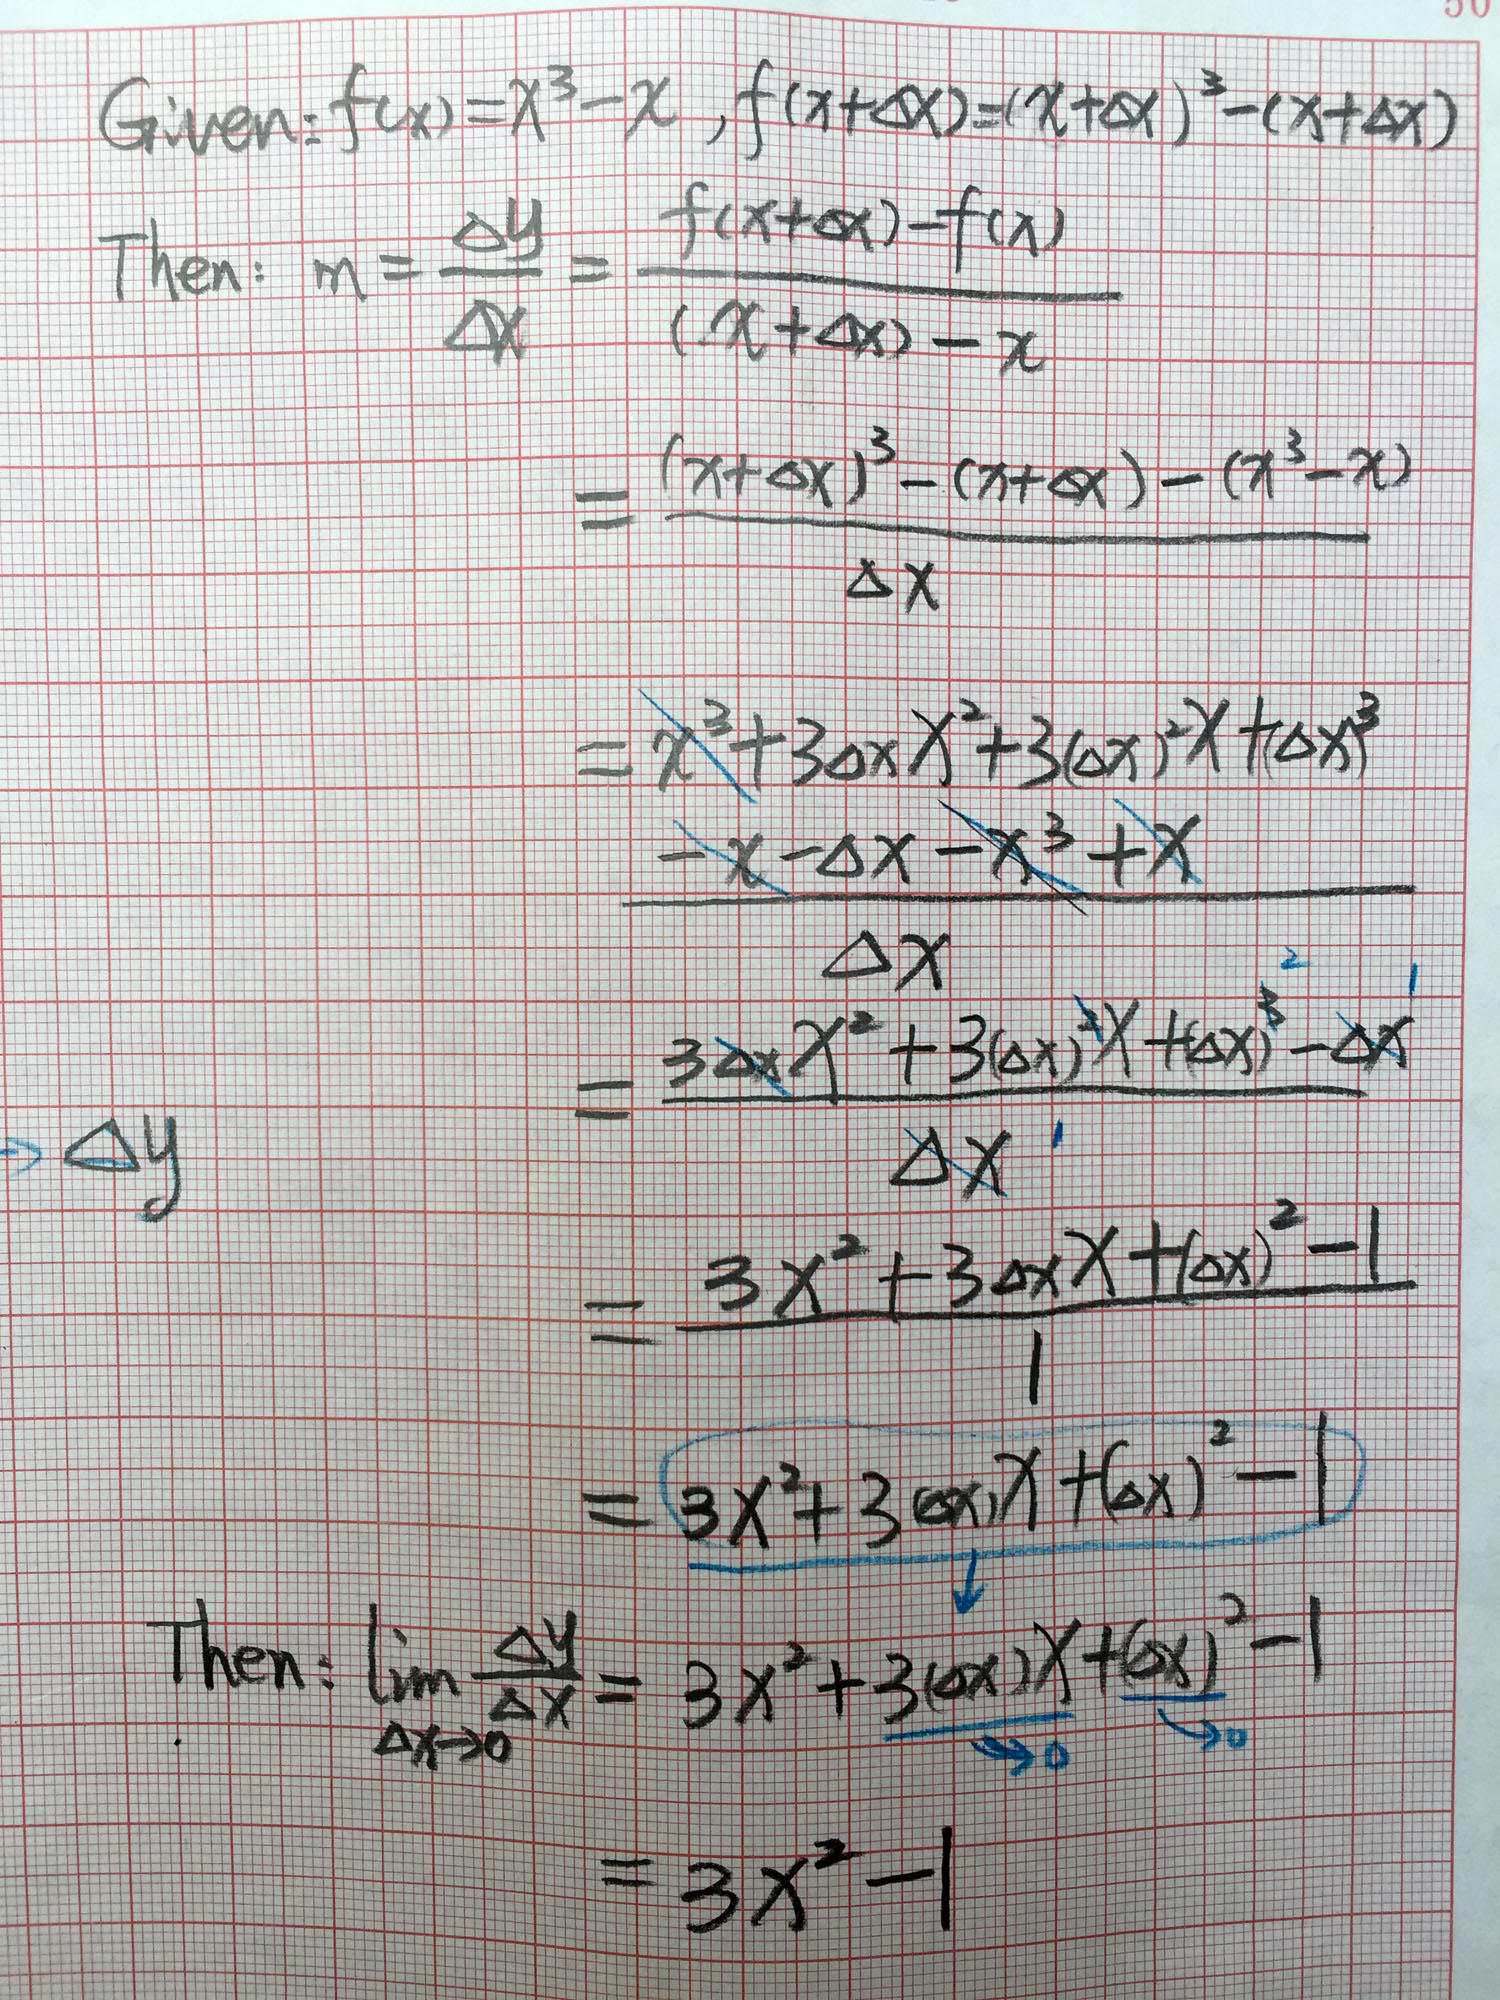 50
Given: f(x) = x³ - x , f(x+Δx) = (x+Δx)³ - (x+Δx)
Then: m = Δy/Δx = (f(x+Δx) - f(x))/((x+Δx) - x)
= ((x+Δx)³ - (x+Δx) - (x³ - x))/Δx
= x³ + 3Δx x² + 3(Δx)² x + (Δx)³
- x - Δx - x³ + x
Δx
2 1
= 3Δx x² + 3(Δx)² x + (Δx)³ - Δx
Δx 1
→ Δy
= 3x² + 3Δx x + (Δx)² - 1
1
= 3x² + 3(Δx)x + (Δx)² - 1
↓
Then: lim Δy/Δx = 3x² + 3(Δx)x + (Δx)² - 1
Δx→0 →0 →0
= 3x² - 1